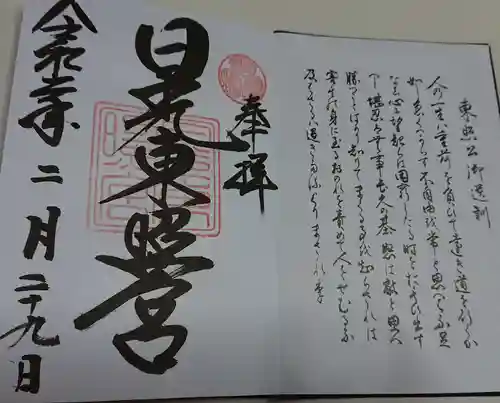 東照公御遺訓
人の一生は重荷を負ひて遠き道を行くか
如しいそくへからす不自由を常と思へは不足
なし心に望起らは困窮したる時を思ひ出す
へし堪忍は無事長久の基怒は敵と思へ
勝つことはかり知りてまくるを知らされは
害其身に至るおのれを責めて人をせむるな
及はさるは過きたるよりまされり
奉拝
日光東照宮
令和二年二月二十九日